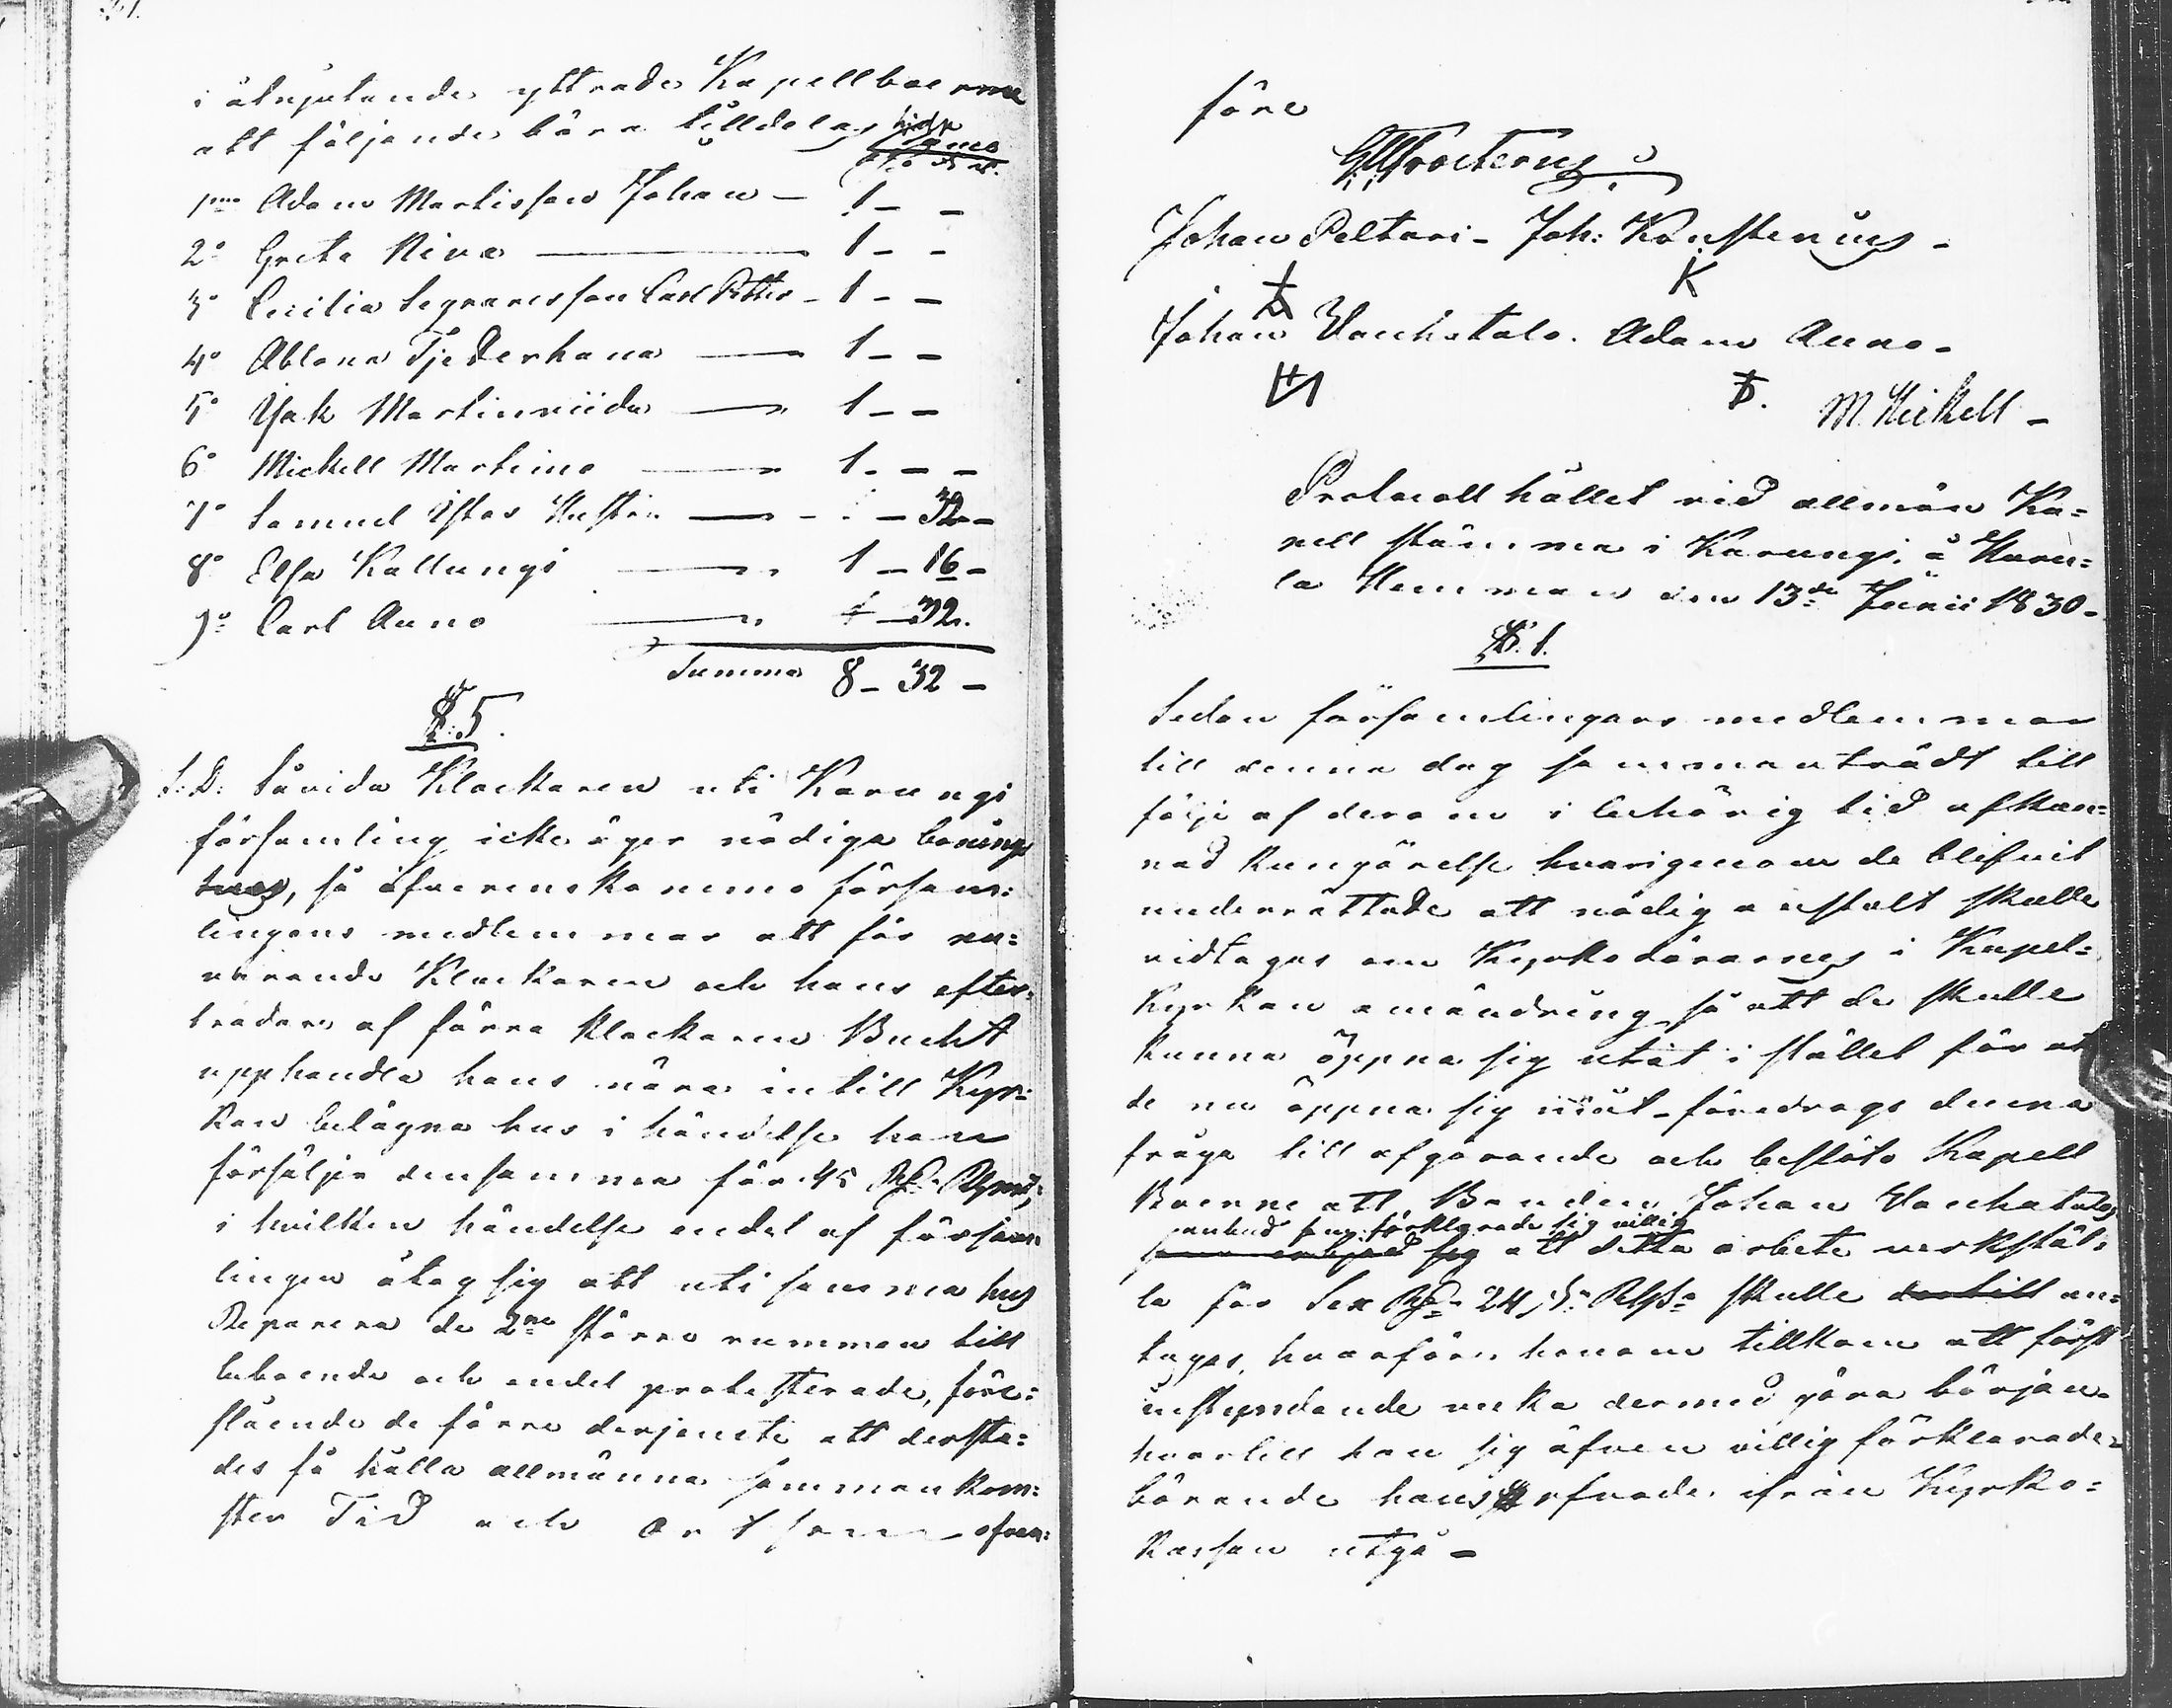 i åtnjutande yttrade Kapellboerne
att följande böra tilldelas
1mo Adam Martisson Johan — 1 - -
2o Greta Niva — 1 - -
3o Cecilia Carl Petter - 1 - -
4o Ablona Tjederhana — 1 - -
5o Isak Martinviida — 1 - -
6o Mickell Martimo — 1 - -
7o Samuel — - - 32 -
8o Elsa Kallungi — 1 - 16 -
9o Carl Auno — - 32.
Summa 8 - 32 -
§. 5.
S. D. Såvida Klockaren uti Karungi
församling icke äger nödiga bonings
hus, så öfverenskommo försam:
lingens medlemmar att för nu:
varande Klockaren och hans efter:
trädare af förra Klockaren Bucht
upphandla hans nära intill Kyr:
kan belägna hus i händelse han
försäljer densamma för 45 Rd.
i hvilken händelse endel af försam
lingen åtog sig att uti samma hus
Reparera de 2ne större rummen till
beboende och endel protesterade, före:
slående de förre derjemte att dersta:
des få hålla allmänna sammankom:
ster Tid och Ort som ofvan:
före
Johan Peltari - Joh:
K
Johan Vanhatalo. Adam Auno -
M. Heikell -
Protocoll hållet vid allmän Ka=
pell stämma i Karungi, å
la Hemman den 13de Junii 1830 -
§. 1.
Sedan församlingens medlemmar
till denna dag sammanträdt till
följe af derom i behörig tid afkun=
nad kungörelse hvarigenom de blifvit
underrättade att nödig anstalt skulle
vidtagas om Kyrkodörarnes i Kapel=
Kyrkan omändring så att de skulle
kunna öppna sig utåt i stället för at
de nu öppna sig inåt - föredrogs denna
fråga till afgörande och beslöto Kapell
Boerne att Bonden Johan Vanhatalos
anbud som förklarade sig villig
sig att detta arbete verkstäl=
la för Sex Rd 24 s. skulle dertill an=
tagas, hvarföre honom tillkom att först
instundande vecka dermed göra början
hvartill han sig äfven villig förklarade -
börande hans arfvode ifrån Kyrko=
kassan utgå -